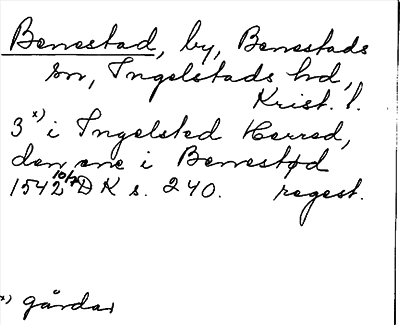 Benestad, by, Benestads
sn, Ingelstads hd,
Krist. l.
3 x) i Ingelsted Herred,
den ene i Benestød
1542 10/7 DK s. 240. regest.
x) gårdar